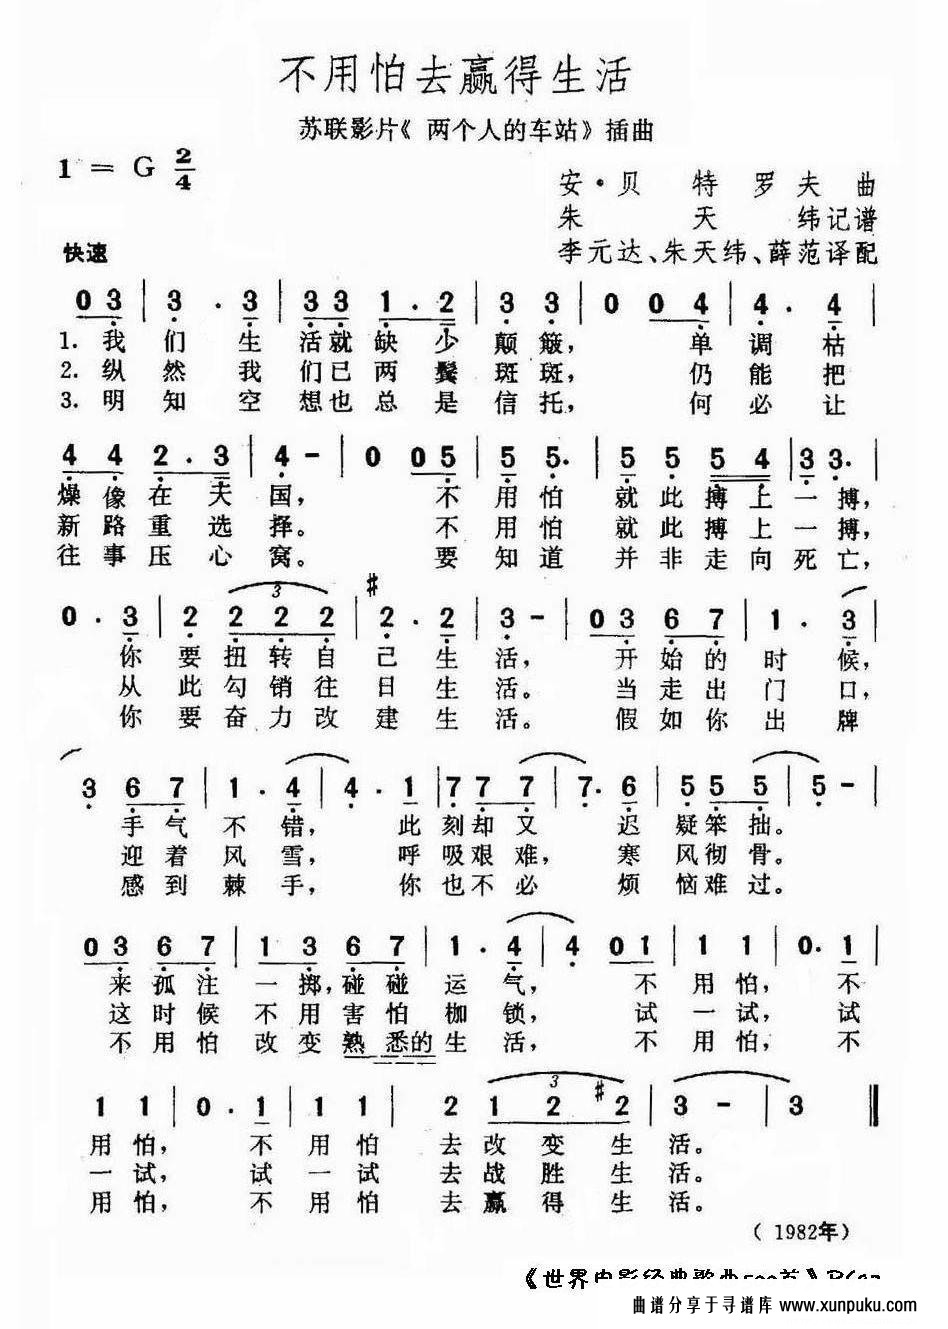 不用怕去赢得生活
苏联影片《两个人的车站》插曲
1 = G 2/4
安·贝特罗夫曲
朱天纬记谱
快速
李元达、朱天纬、薛范译配
0 3 | 3 . 3 | 3 3 1 . 2 | 3 3 | 0 0 4 | 4 . 4 |
1. 我们生活就缺少颠簸, 单调枯
2. 纵然我们已两鬓斑斑, 仍能把
3. 明知空想也总是信托, 何必让
4 4 2 . 3 | 4 - | 0 0 5 | 5 5 . | 5 5 5 4 | 3 3 . |
燥像在天国, 不用怕就此搏上一搏,
新路重选择。 不用怕就此搏上一搏,
往事压心窝。 要知道并非走向死亡,
0 . 3 | 2 2 2 2 | #2 . 2 | 3 - | 0 3 6 7 | 1 . 3 |
3
你要扭转自己生活, 开始的时候,
从此勾销往日生活。 当走出门口,
你要奋力改建生活。 假如你出牌
3 6 7 | 1 . 4 | 4 . 1 | 7 7 7 | 7 . 6 | 5 5 5 | 5 - |
手气不错, 此刻却又迟疑笨拙。
迎着风雪, 呼吸艰难, 寒风彻骨。
感到棘手, 你也不必烦恼难过。
0 3 6 7 | 1 3 6 7 | 1 . 4 | 4 0 1 | 1 1 | 0 . 1 |
来孤注一掷, 碰碰运气, 不用怕, 不
这时候不用害怕枷锁, 试一试, 试
不用怕改变熟悉的生活, 不用怕, 不
1 1 | 0 . 1 | 1 1 | 2 1 2 #2 | 3 - | 3 ‖
3
用怕, 不用怕去改变生活。
一试, 试一试去战胜生活。
用怕, 不用怕去赢得生活。
( 1982年)
《世界电影经典歌曲500首》
曲谱分享于寻谱库 www.xunpuku.com